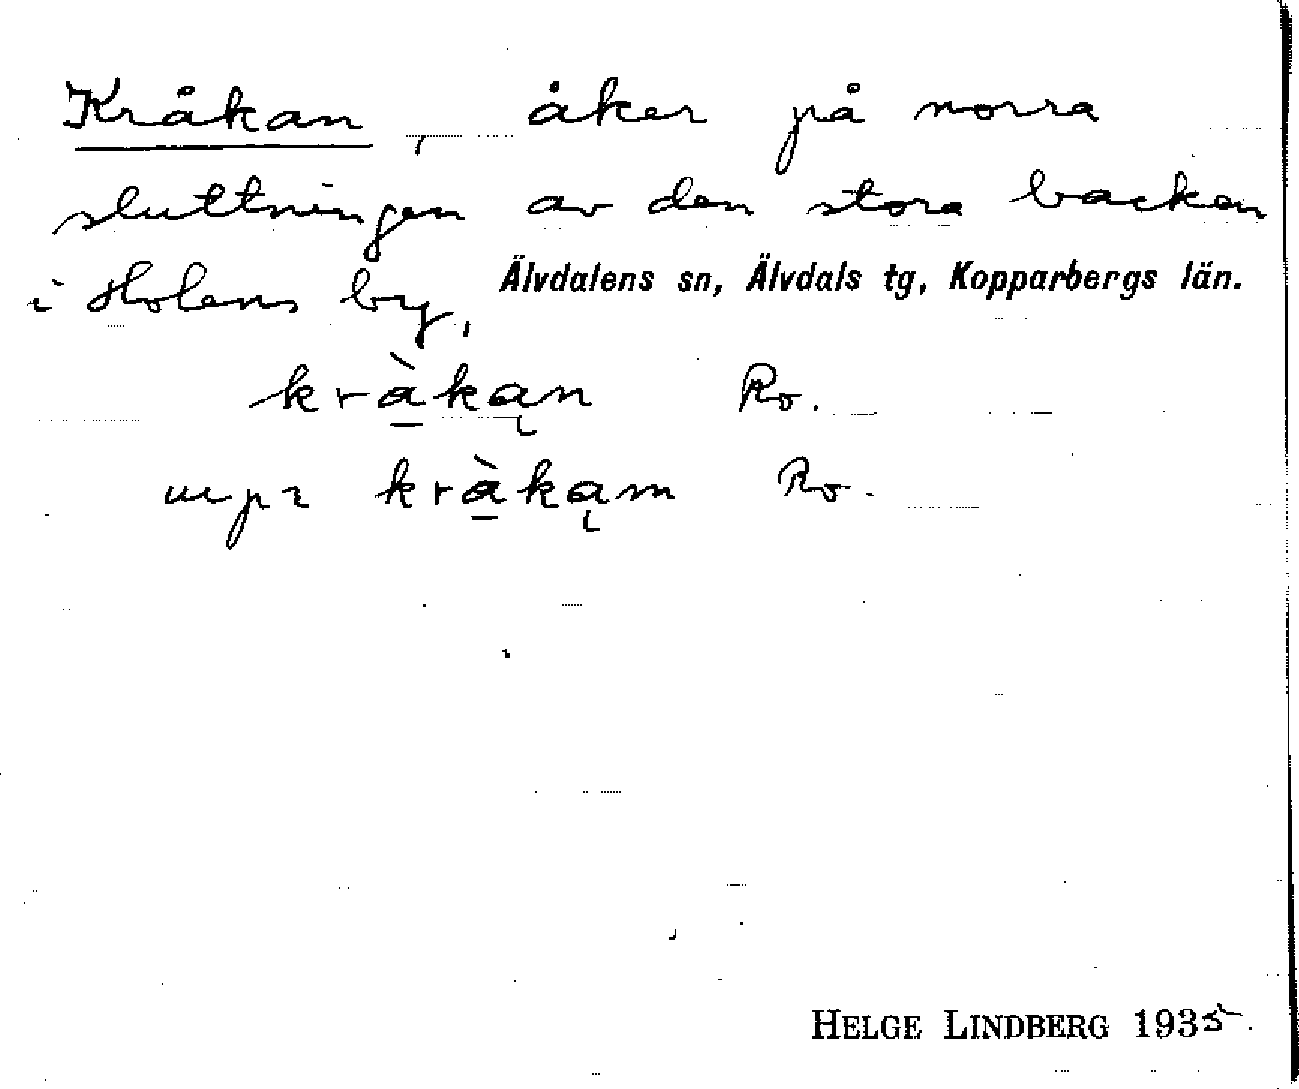 Kråkan, åker på norra
sluttningen av den stora backen
i Holens by, Älvdalens sn, Älvdals tg, Kopparbergs län.
krà̠ką̀n Ro.
upr krà̠kąm Ro.
HELGE LINDBERG 1935.